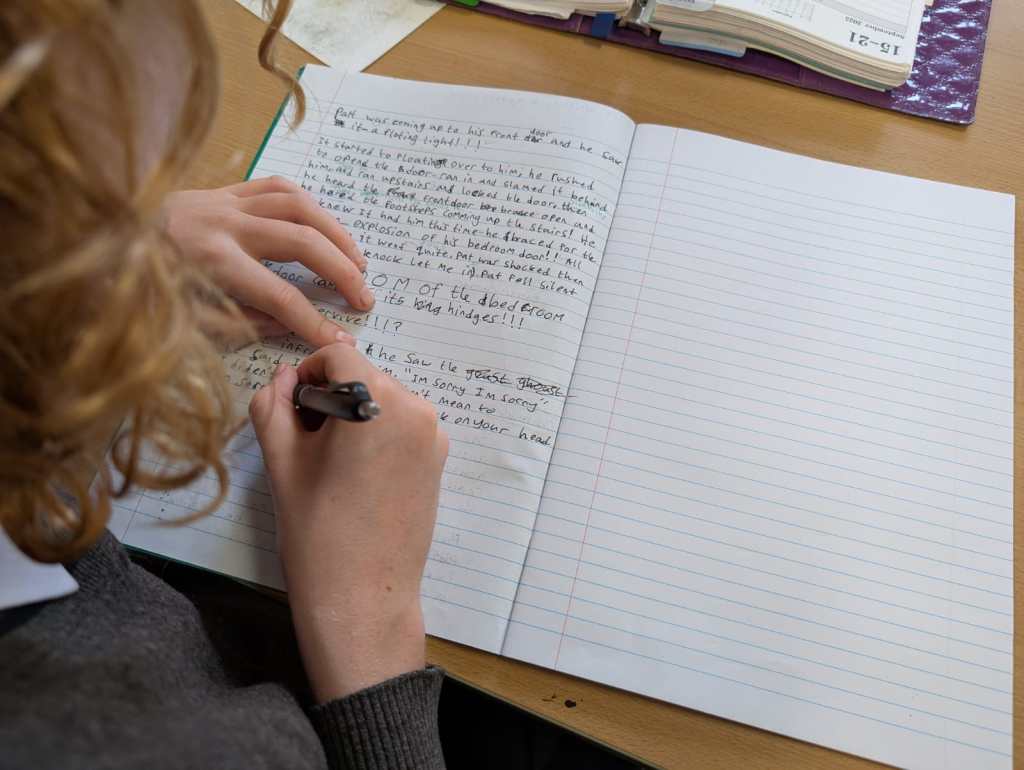 Patt was coming up to his front door and he saw
it - a floting light!!!
It started to float over to him, he rushed
to opene the door ran in and slamed it behind
him, and ran upstairs and locked the door, then
he heard the frontdoor brace open and
he hared the footsteps comming up the stairs! He
knew it had him this time - he braced for the
explosion of his bedroom door!! All
it went quite, Pat was shocked then
knock Let me in). Pat fell silent
OOM Of the bedroom
door its hindges!!!
servive!!!?
he saw the
said "Im sorry Im sorry",
mean to
on your head
September 2025
15-21